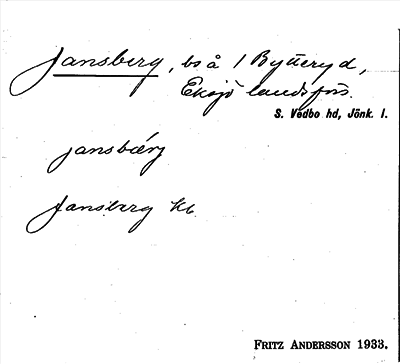 Jansberg, bs å 1 Bytteryd,
Eksjö landsförs.
S. Vedbo hd, Jönk. l.
jansbærj
Jansberg kb
FRITZ ANDERSSON 1933.